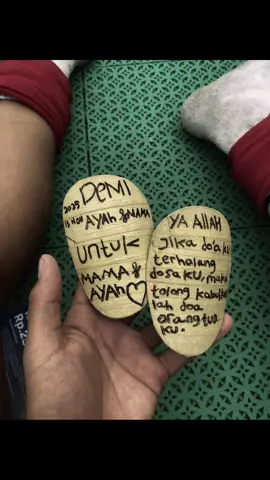 DEMI
AYAH & MAMA
untuk
MAMA &
AYAH
YA ALLAH
Jika do'a ku
terhalang
dosaku, maka
tolong kabul
lah doa
orang tua
ku.
Rp.